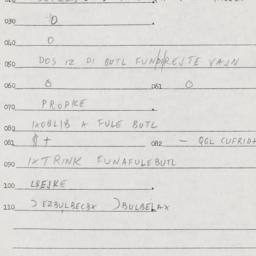 030 0
040 0
050 DOS IZ DI BUTL FUND//REJTE VAJN
060 0 061 0
070 PROPKE
080 IXOBLIB A FULE BUTL
081 $+ 082 — QGL CUFRIDN
090 IXTRINK FUNAFULEBUTL
100
110 )EZBULBECBX )BULBELAX